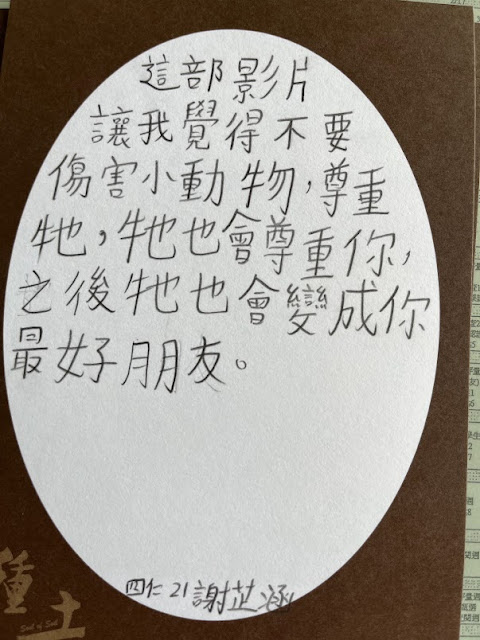 這部影片
讓我覺得不要
傷害小動物,尊重
牠,牠也會尊重你,
之後牠也會變成你
最好朋友。
四仁21謝芷涵
種土
Soil of Soul